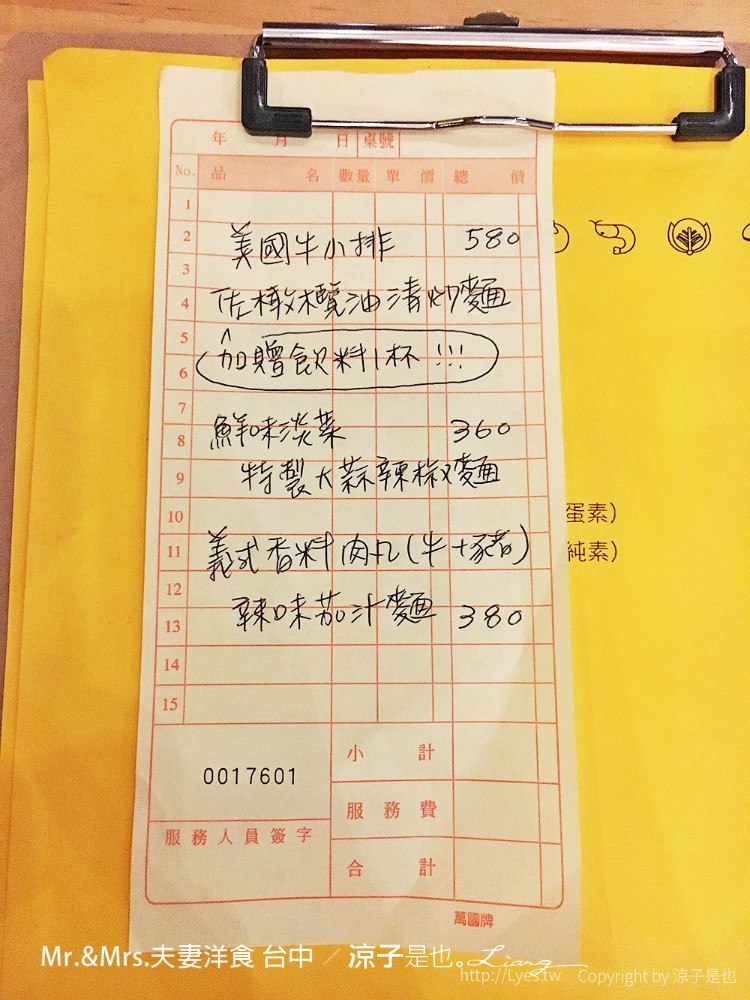 年 月 日 桌號
No. 品 名 數量 單 價 總 價
1
2 美國牛小排 580
3
4 佐橄欖油清炒麵
5
6 加贈飲料1杯!!!
7
8 鮮味淡菜 360
9 特製大蒜辣椒麵
10
蛋素)
11 義式香料肉丸(牛+豬)
純素)
12
13 辣味茄汁麵 380
14
15
小 計
0017601
服 務 費
服務人員簽字
合 計
萬國牌
Mr.&Mrs.夫妻洋食 台中 ／涼子是也。Liang
http://Lyes.tw Copyright by 涼子是也